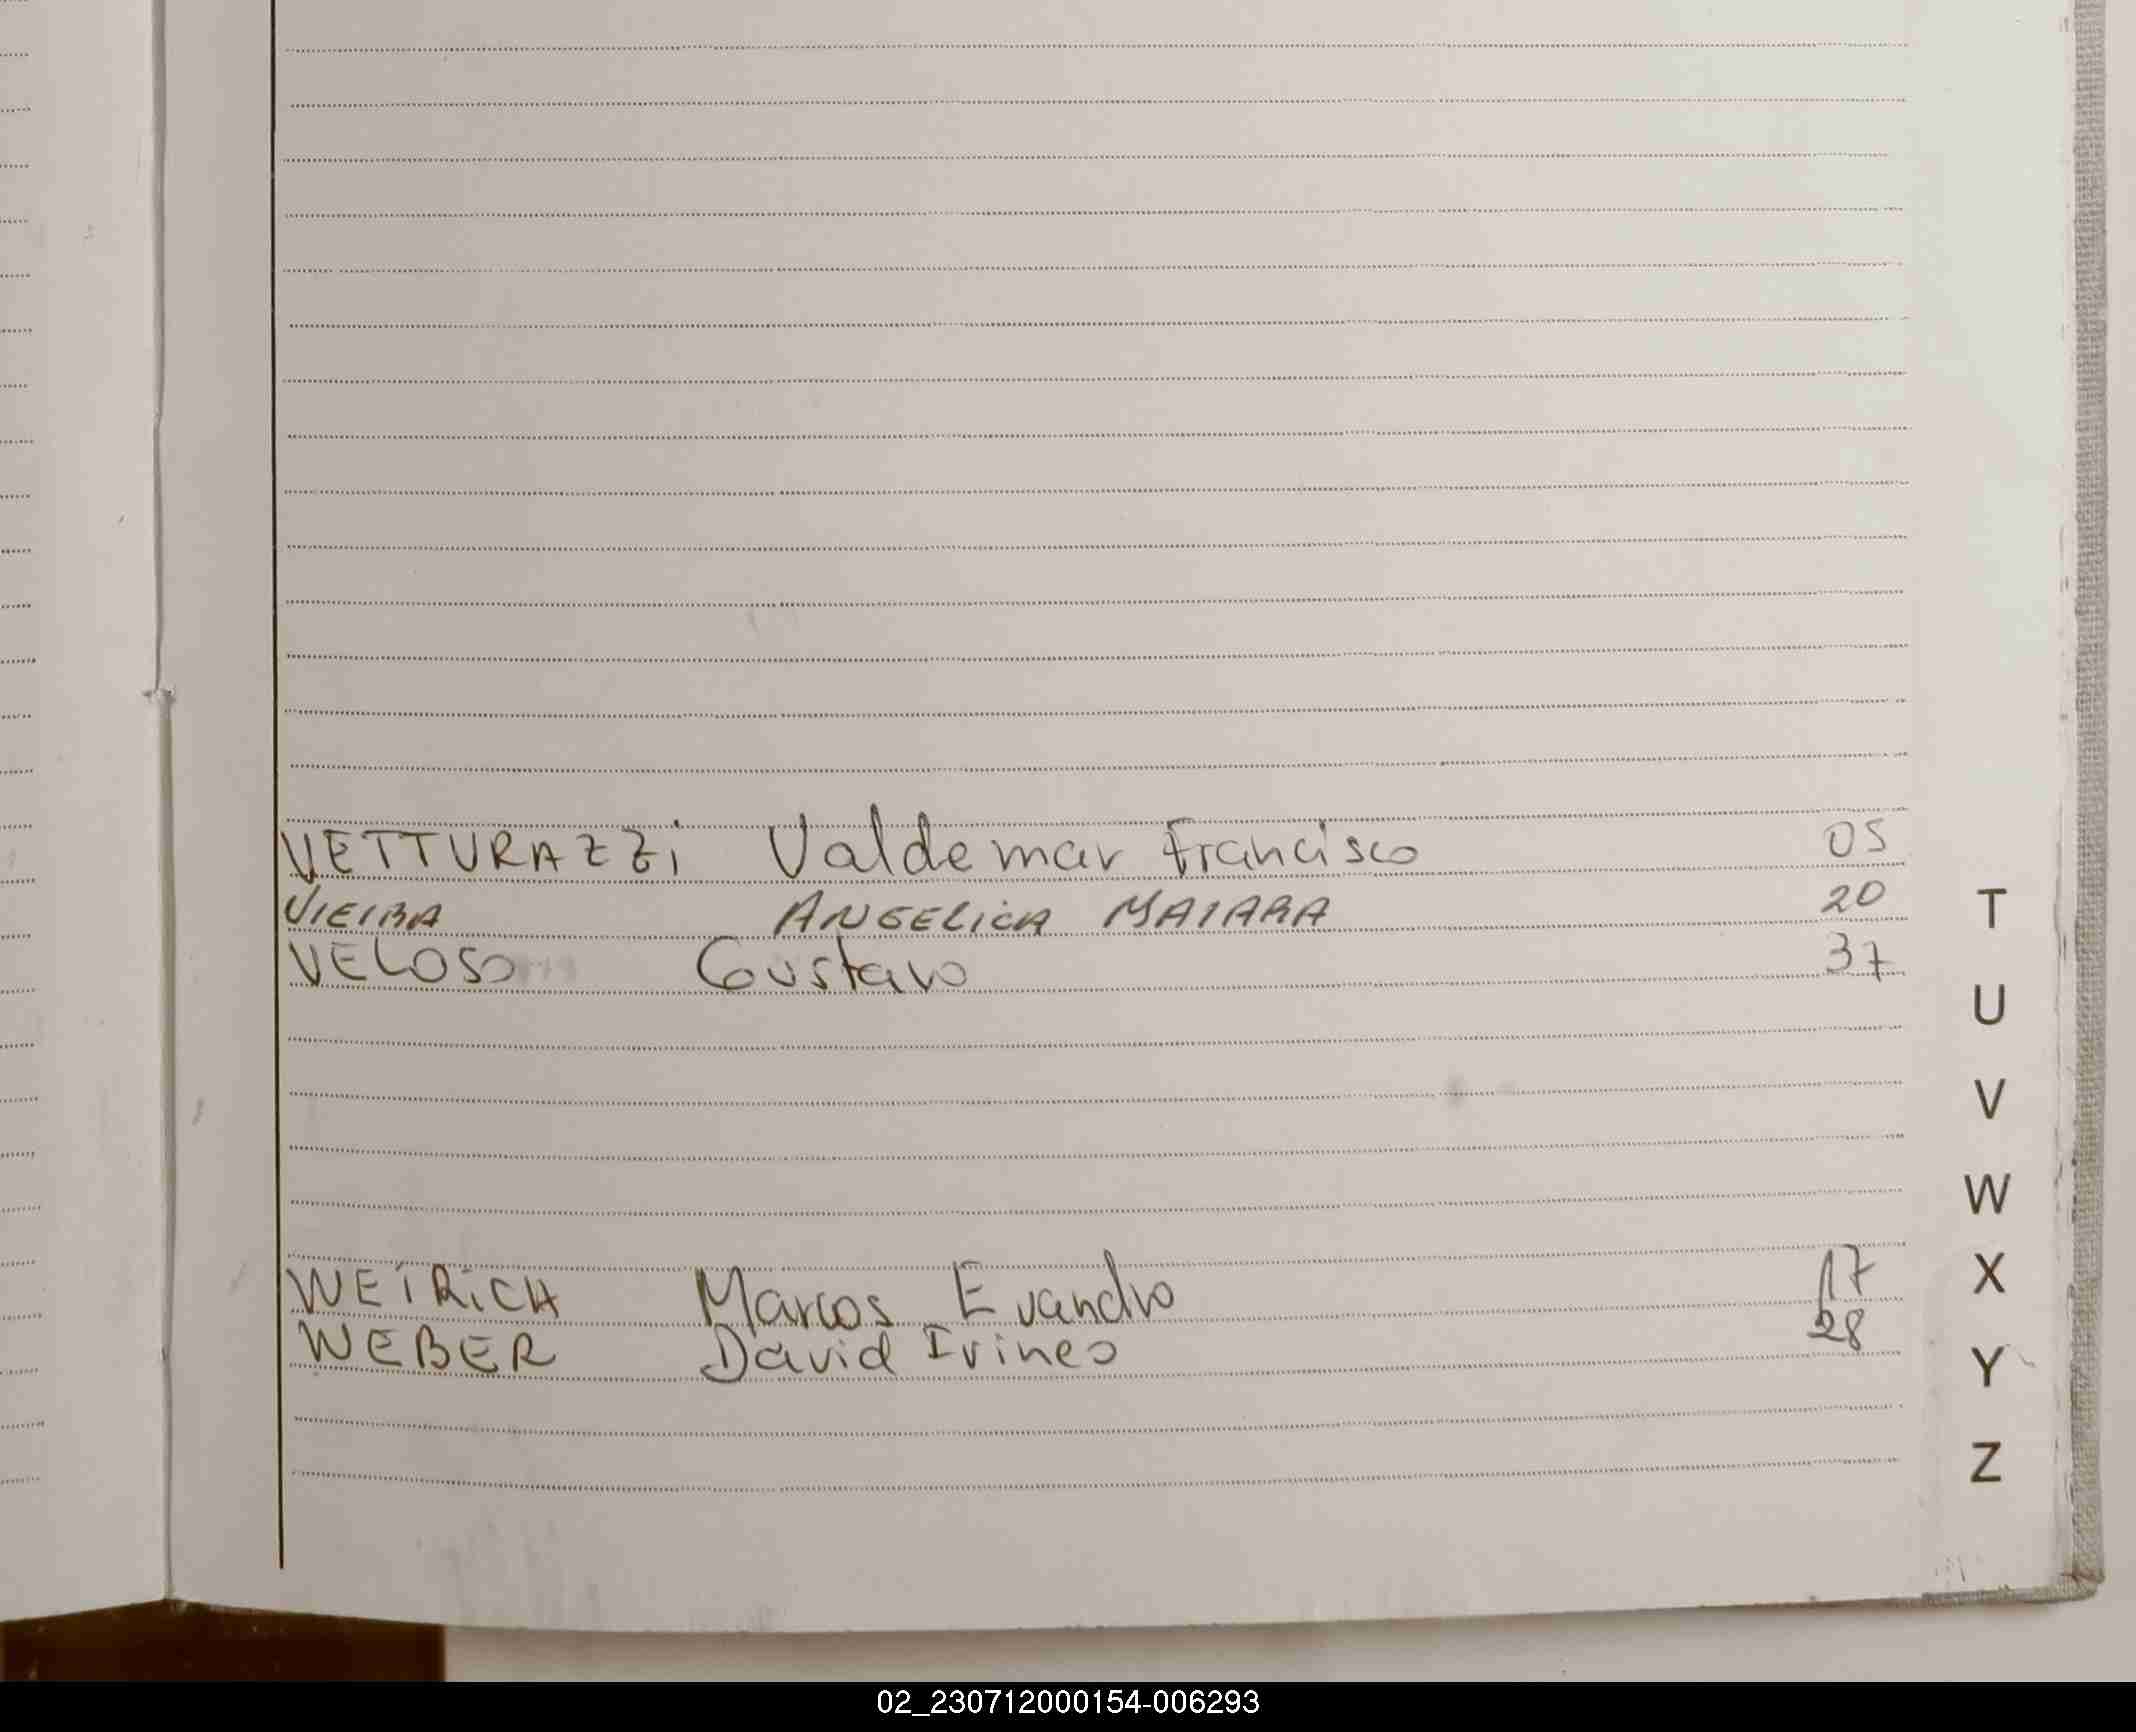 VETTURAZZi Valdemar Francisco 05
VIEIRA ANGELiCA MAIARA 20
VELOSO Gustavo 37
WEIRiCH Marcos Evandro 17
WEBER David Irineo 28
T
U
V
W
X
Y
Z
02_230712000154-006293